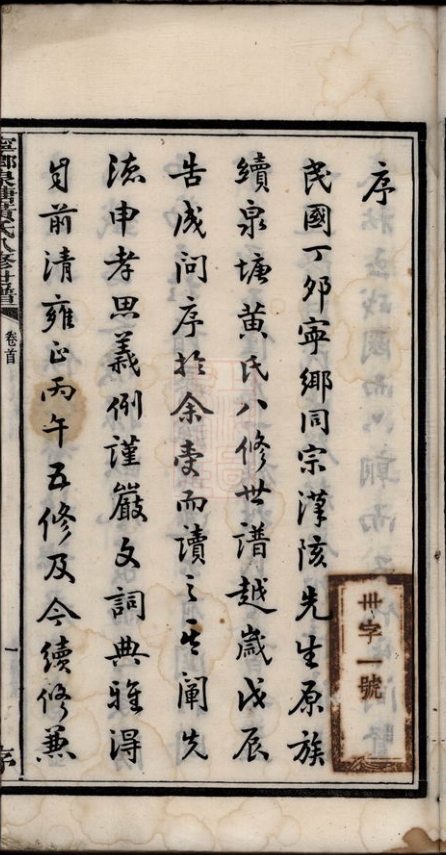 序
民國丁卯寧鄉同宗漢陔先生原族
續泉塘黃氏八修世譜越歲戊辰
告成問序於余壹而讀之其闡先
德申孝思義例謹嚴文詞典雅得
自前清雍正丙午五修及今續修兼
寧鄉泉塘黃氏八修世譜
卷首
一
序
卅字一號